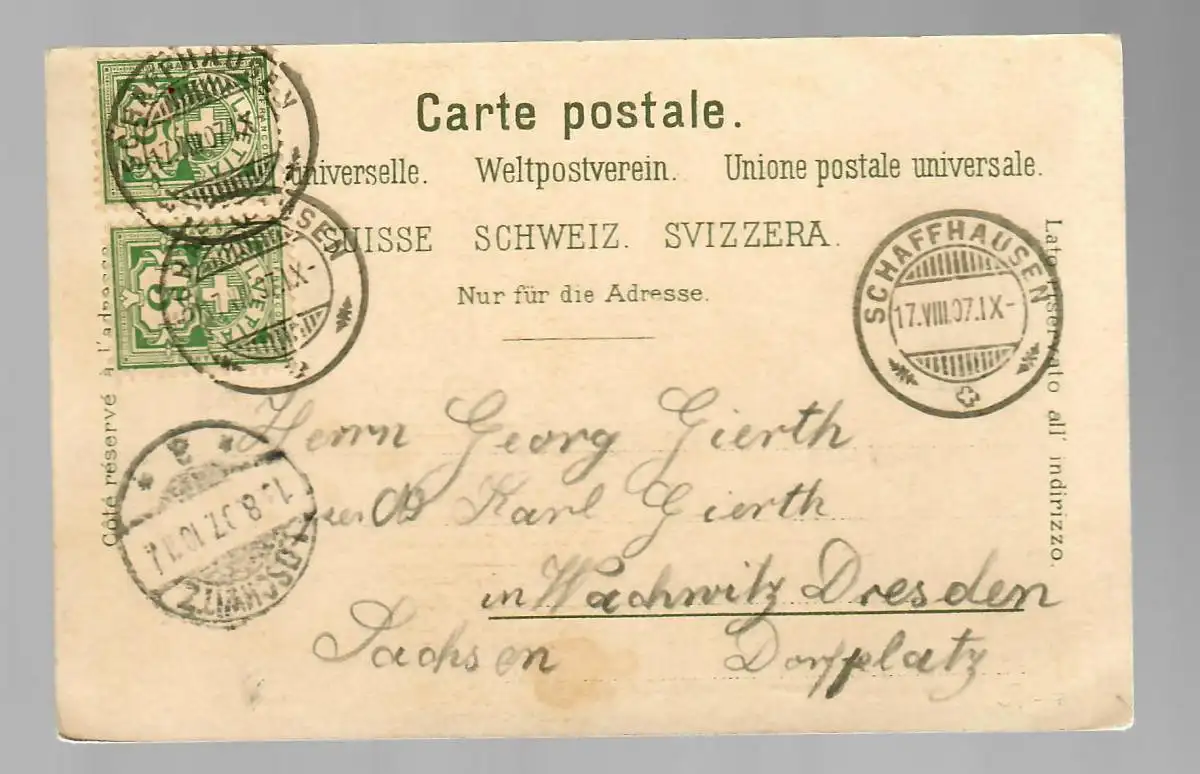 Carte postale.
universelle. Weltpostverein. Unione postale universale.
SUISSE SCHWEIZ. SVIZZERA.
Nur für die Adresse.
Côté réservé à l'adresse
Lato riservato all' indirizzo.
SCHAFFHAUSEN
17.VIII.07.IX-
SCHAFFHAUSEN
17.VIII.07.
HELVETIA
5
HELVETIA
5
LOSCHWITZ
Herrn Georg Gierth
Karl Gierth
in Wachwitz Dresden
Sachsen Dorfplatz